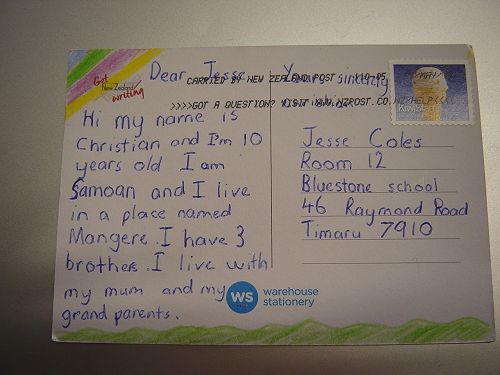 Get
New Zealand
writing
Dear Jesse
Hi my name is
Christian and I'm 10
years old I am
Samoan and I live
in a place named
Mangere. I have 3
brothers. I live with
my mum and my
grand parents.
Yours sincerely
CARRIED BY NEW ZEALAND POST
>>>>GOT A QUESTION? VISIT WWW.NZPOST.CO.NZ/HELP<<<<
Jesse Coles
Room 12
Bluestone school
46 Raymond Road
Timaru 7910
WS
warehouse
stationery